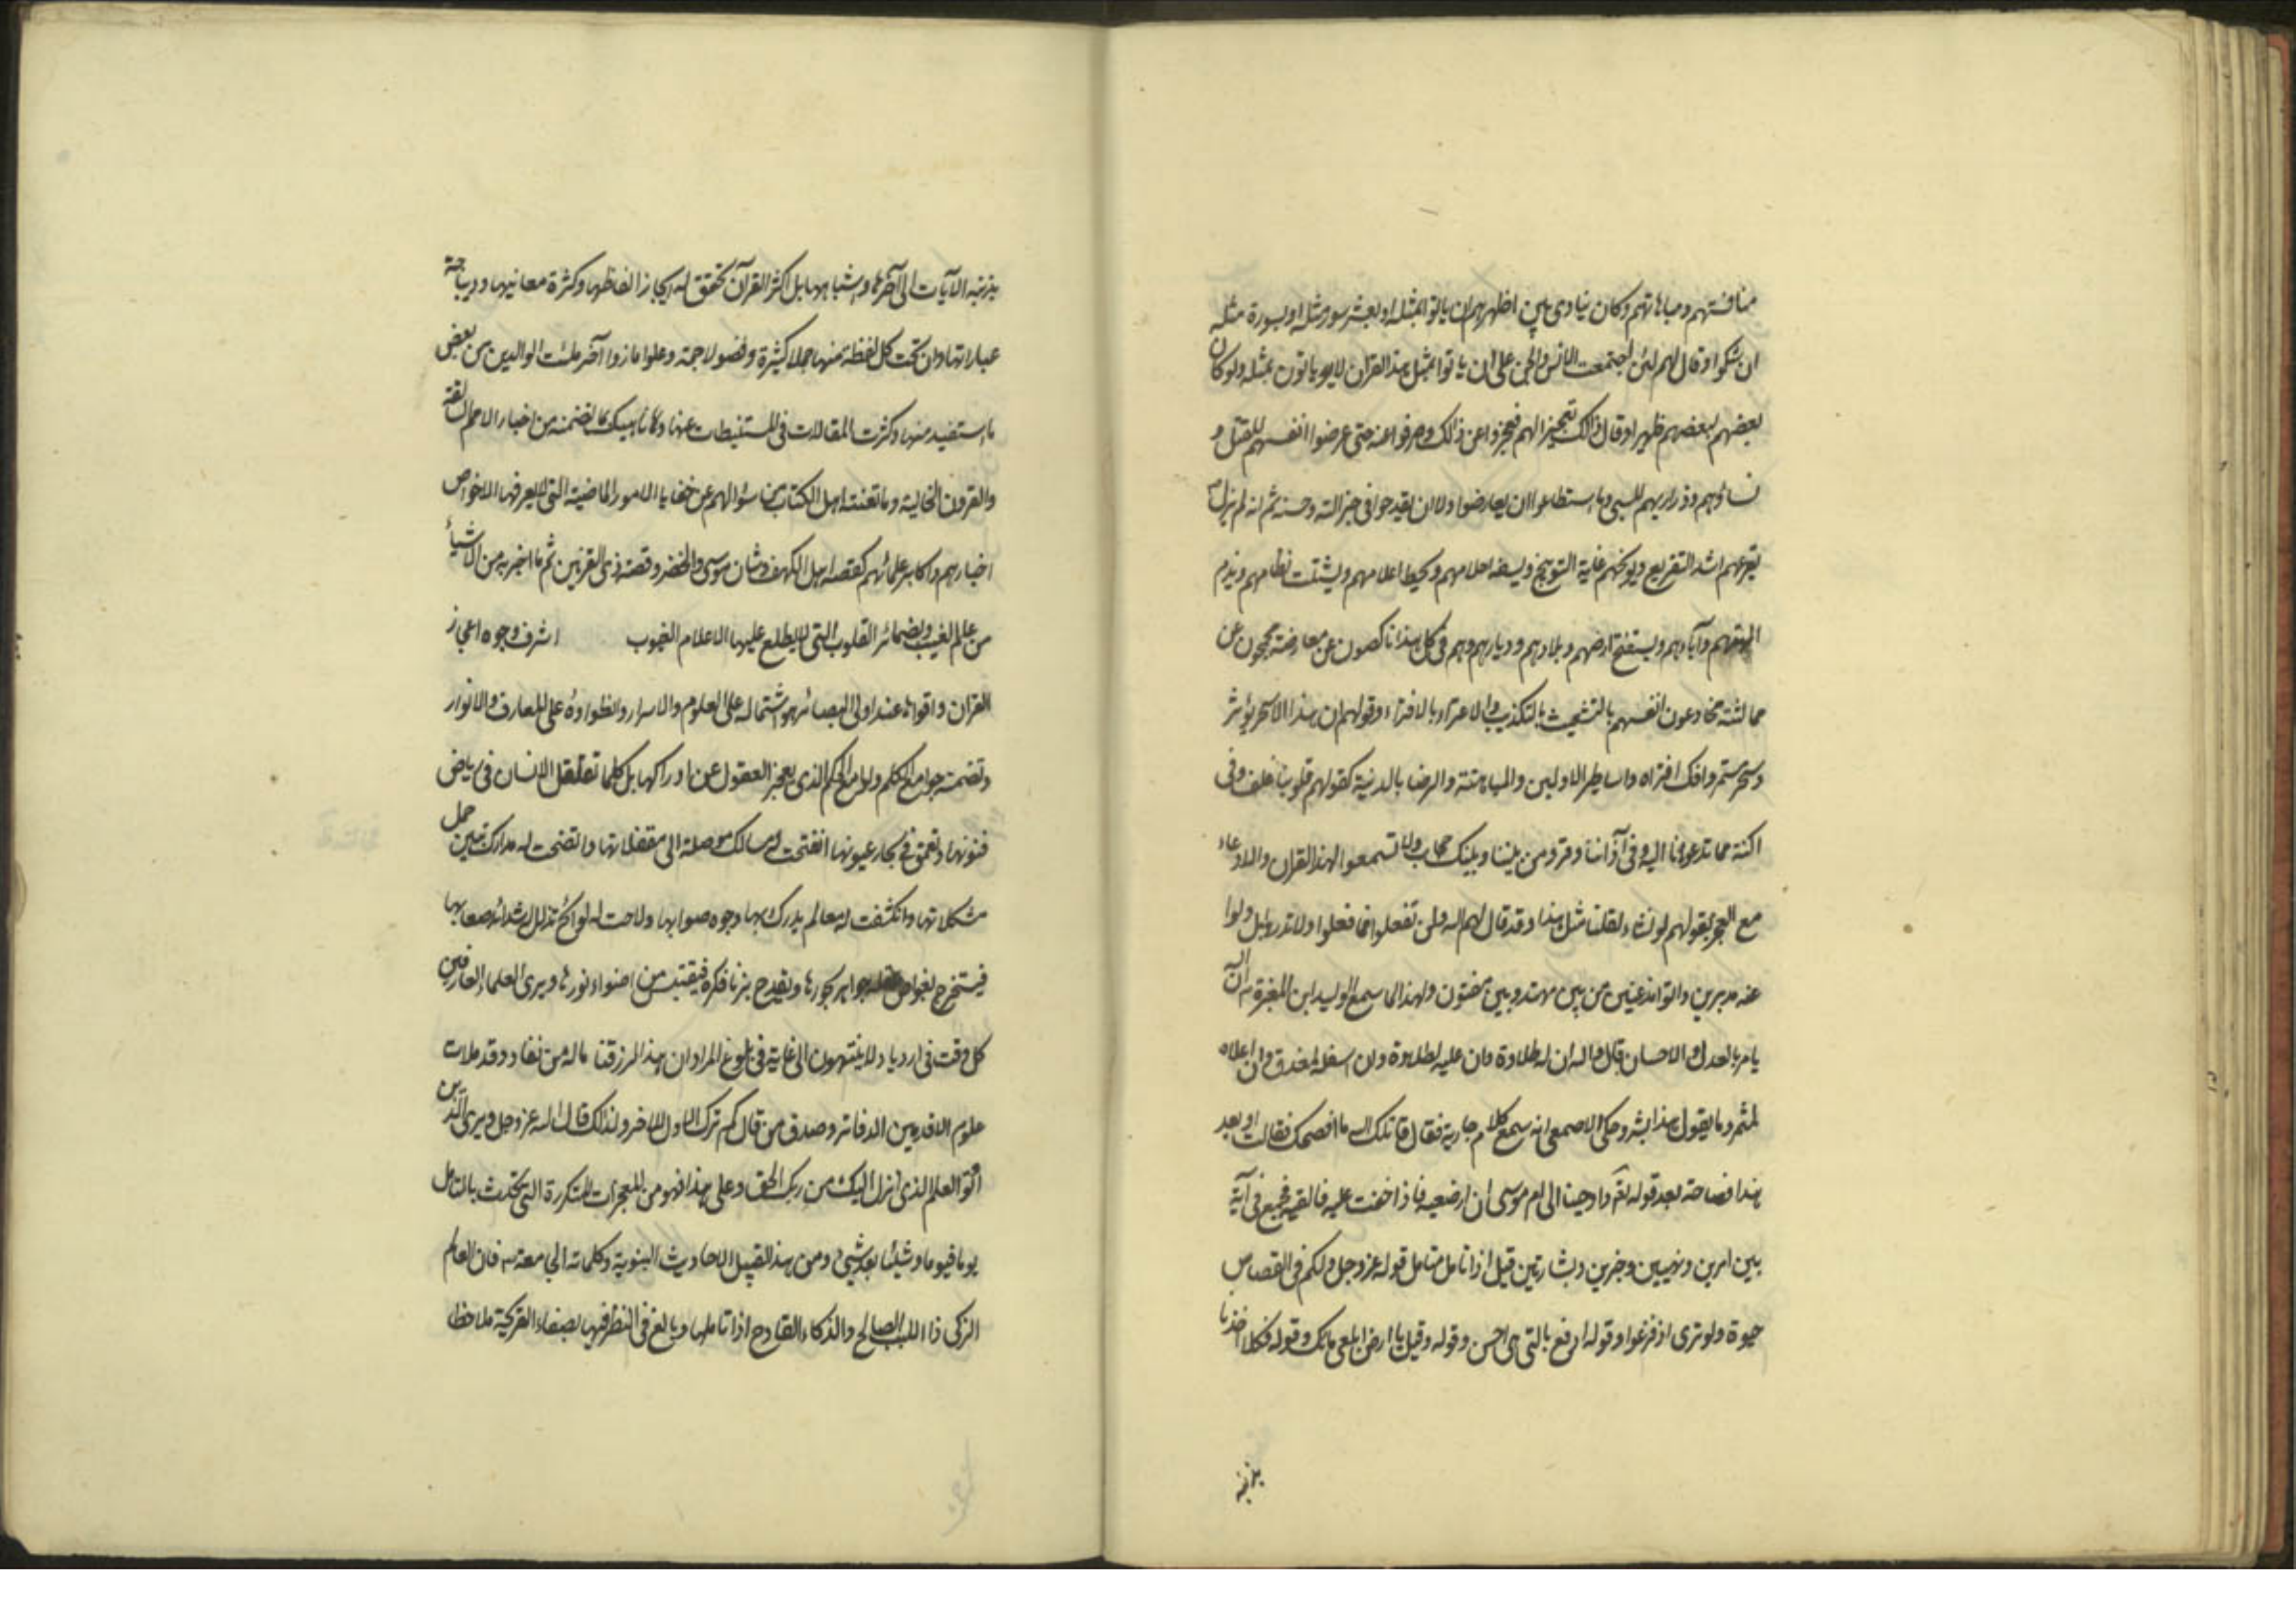 منافستهم ومباهاتهم وكان ينادى بين اظهرهم ان ياتوا بمثله او بعشر سور مثله او بسورة مثله
ان شكوا وقال لهم لئن اجتمعت الانس والجن على ان ياتوا بمثل هذا القران لا ياتون بمثله ولو كان
بعضهم لبعضهم ظهيرا وقال ذالك تعجيزا لهم فعجزوا عن ذالك وصرفوا عنه حتى عرضوا انفسهم للقتل و
نساؤهم وذراريهم للسبى وما استطاعوا ان يعارضوا ولا ان يقدحوا فى جزالته وحسنه ثم انه لم يزل
يقرعهم اشد التقريع ويوبخهم غاية التوبيخ ويسفه احلامهم ويحط اعلامهم ويشتت نظامهم ويذم
الهتهم وآباءهم ويستفتح ارضهم وبلادهم وديارهم وهم فى كل هذا ناكصون عن معارضته محجون عن
مماثلته يخادعون انفسهم بالتشغيب بالتكذيب والاغراء بالافتراء وقولهم ان هذا الا سحر يؤثر
وسحر مستمر وافك افتراه واساطير الاولين والمباهتة والرضا بالدنية كقولهم قلوبنا غلف وفى
اكنة مما تدعونا اليه وفى آذاننا وقر ومن بيننا وبينك حجاب ولا تسمعوا لهذا القران والادعاء
مع العجز بقولهم لو نشاء لقلنا مثل هذا وقد قال لهم الله ولن تفعلوا فما فعلوا ولا قدروا بل ولوا
عنه مدبرين واتوا مذعنين من بين مهتد وبين مفتون ولهذا لما سمع الوليد ابن المغيرة ان الله
يامر بالعدل والاحسان قال والله ان له لحلاوة وان عليه لطلاوة وان اسفله لمغدق وان اعلاه
لمثمر وما يقول هذا بشر وحكى الاصمعى انه سمع كلام جارية فقال قاتلك الله ما افصحك فقالت او بعد
هذا فصاحة بعد قوله تعم واوحينا الى ام موسى ان ارضعيه فاذا خفت عليه فالقيه فجمع فى آية
بين امرين ونهيين وخبرين وبشارتين قيل اذا تامل متامل قوله عز وجل ولكم فى القصاص
حيوة ولو ترى اذ فزعوا وقوله ادفع بالتى هى احسن وقوله وقيل يا ارض ابلعى ماءك وقوله فكلا اخذنا
بذنبه
بذنبه الآيات الى آخرها واشباهها بل اكثر القرآن تحقق له ايجاز الفاظها وكثرة معانيها وديباجة
عباراتها وان تحت كل لفظة منها جملا كثيرة وفصولا جمة وعلوما زواخر ملئت الدواوين من بعض
ما استفيد منها وكثرت المقالات فى المستنبطات عنها وناهيك ما تضمنه من اخبار الامم السالفة
والقرون الخالية وما تعنته اهل الكتاب من سؤالهم عن خفايا الامور الماضية التى لا يعرفها الا خواص
احبارهم واكابر علمائهم كقصة اهل الكهف وشان موسى والخضر وقصة ذى القرنين ثم ما اخبر به من الاشياء
من عالم الغيب وبضمائر القلوب التى لا يطلع عليها الا علام الغيوب اشرف وجوه اعجاز
القران واقواها عند اولى البصائر هو اشتماله على العلوم والاسرار وانطواؤه على المعارف والانوار
وتضمنه جوامع الكلم ولوامع الحكم الذى يعجز العقول عن ادراكها بل كلما تغلغل الانسان فى رياض
فنونها وتعمق فى بحار عيونها انفتحت له مسالك موصلة الى مقفلاتها واتضحت له مدارك تبين جمل
مشكلاتها وانكشفت له معالم يدرك بها وجوه صوابها ولاحت له لوائح تذلل شدائد صعابها
فيستخرج بغواص جواهر بحورها ويقدح بزناد فكره فيقتبس من اضواء نورها ويرى العلماء العارفين
كل وقت فى ازدياد ولا ينتهون الى غاية فى بلوغ المراد ان هذا لرزقنا ما له من نفاد وقد ملات
علوم الاقدمين الدفاتر وصدق من قال كم ترك الاول للاخر ولذلك قال الله عز وجل ويرى الذين
اوتوا العلم الذى انزل اليك من ربك الحق وعلى هذا فهو من المعجزات المتكررة التى تحدث بالتامل
يوما فيوما وشيئا بعد شىء ومن هذا القبيل الاحاديث النبوية وكلماته الجامعة فان العالم
الزكى ذا اللب الصالح والذكاء القادح اذا تاملها وبالغ فى النظر فيها بصفاء القريحة ملاحظا